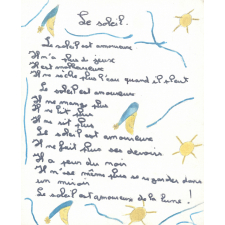 Le soleil.
Le soleil est amoureux
Il n'a plus de jeux
Il est malheureux
Il ne sèche plus l'eau quand il pleut
Le soleil est amoureux
Il ne mange plus
Il ne lit plus
Il ne rit plus
Le soleil est amoureux
Il ne fait plus ses devoirs
Il a peur du noir
Il n'ose même plus se regarder dans
un miroir
Le soleil est amoureux de la lune !